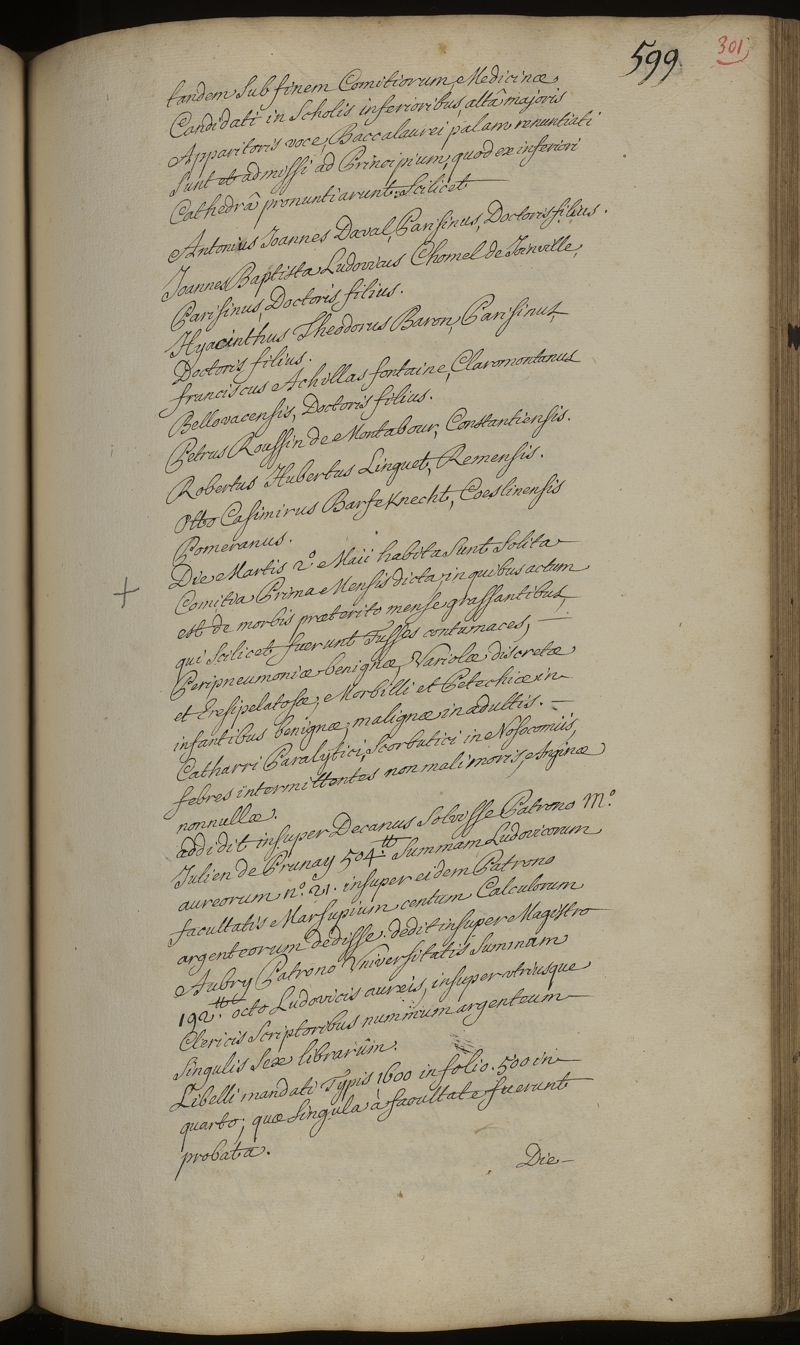 599
301
tandem Sub finem Comitiorum Medicinæ
Candidati in Scholis inferioribus, altâ majoris
Apparitoris voce, Baccalaurei palam renuntiati
Sunt et admissi ad Principium, quod ex inferiori
Cathedrâ pronuntiarunt. Scilicet
Antonius Joannes Daval, Parisinus, Doctoris filius.
Joannes Baptista Ludovicus Chomel de Joinville,
Parisinus, Doctoris filius.
Hyacinthus Theodorus Baron, Parisinus,
Doctoris filius.
franciscus Achillas fontaine, Claromontanus
Bellovacensis, Doctoris filius.
Petrus Roussin de Montabour, Constantiensis.
Robertus Hubertus Linguet, Remensis.
Otto Casimirus Barfeknecht, Coeslinensis
Pomeranus.
Die Martis 2.° Maii habita Sunt Solita
Comitia Prima Mensis dicta, in quibus actum
est de morbis præterito mense grassantibus,
qui Scilicet fuerunt Tusses contumaces,
Peripneumoniæ benignæ, Variolæ discretæ
et Eresipelatosæ; Morbilli et Petechiæ in
infantibus benignæ, malignæ in adultis.
Catharri Paralytici, Scorbutici in Nosocomiis,
febres intermittentes non mali moris, Anginæ
nonnullæ.
addidit insuper Decanus Solvisse Patrono M.°
Julien de Prunay 504.tt Summam Ludovicorum
aureorum n.° 21. insuper eidem Patrono
facultatis Marsupium centum Calculorum
argenteorum dedisse. dedit insuper Magistro
Aubry Patrono Universitatis Summam
192.tt octo Ludovicis aureis, insuper utriusque
Clericis Scriptoribus nummum argenteum
Singulis Sex librarûm.
Libelli mandati Typis 1600 in folio. 500 in
quarto; quæ Singula à facultate fuerunt
probata.
Die